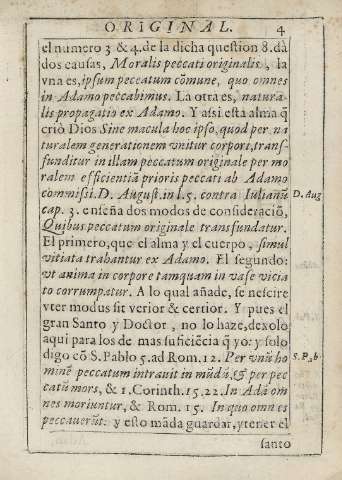 ORIGINAL. 4
el numero 3 & 4. de la dicha question 8. dà
dos causas, Moralis peccati originalis, la
vna es, ipsum peccatum cōmune, quo omnes
in Adamo peccabimus. La otra es, natura-
lis propagatio ex Adamo. Y assi esta alma q̃
criò Dios Sine macula hoc ipso, quod per na
turalem generationem vnitur corpori, trans-
funditur in illam peccatum originale per mo
ralem efficientiã prioris peccati ab Adamo
commissi. D. August. in l. 5. contra Iulianũ D. Aug
cap. 3. enseña dos modos de consideraciõ,
Quibus peccatum originale transfundatur.
El primero, que el alma y el cuerpo, simul
vitiata trahantur ex Adamo. El segundo:
vt anima in corpore tamquam in vase vicia
to corrumpatur. A lo qual añade, se nescire
vter modus sit verior & certior. Y pues el
gran Santo y Doctor, no lo haze, dexolo
aqui para los de mas suficiẽcia q̃ yo: y solo
digo cõ S. Pablo 5. ad Rom. 12. Per vnũ ho S. P. b.
minẽ peccatum intrauit in mũdũ, & per pec
catũ mors, & 1. Corinth. 15. 22. In Adã om
nes moriuntur, & Rom. 15. In quo omnes
peccauerũt: y esto mãda guardar, y tener el
santo